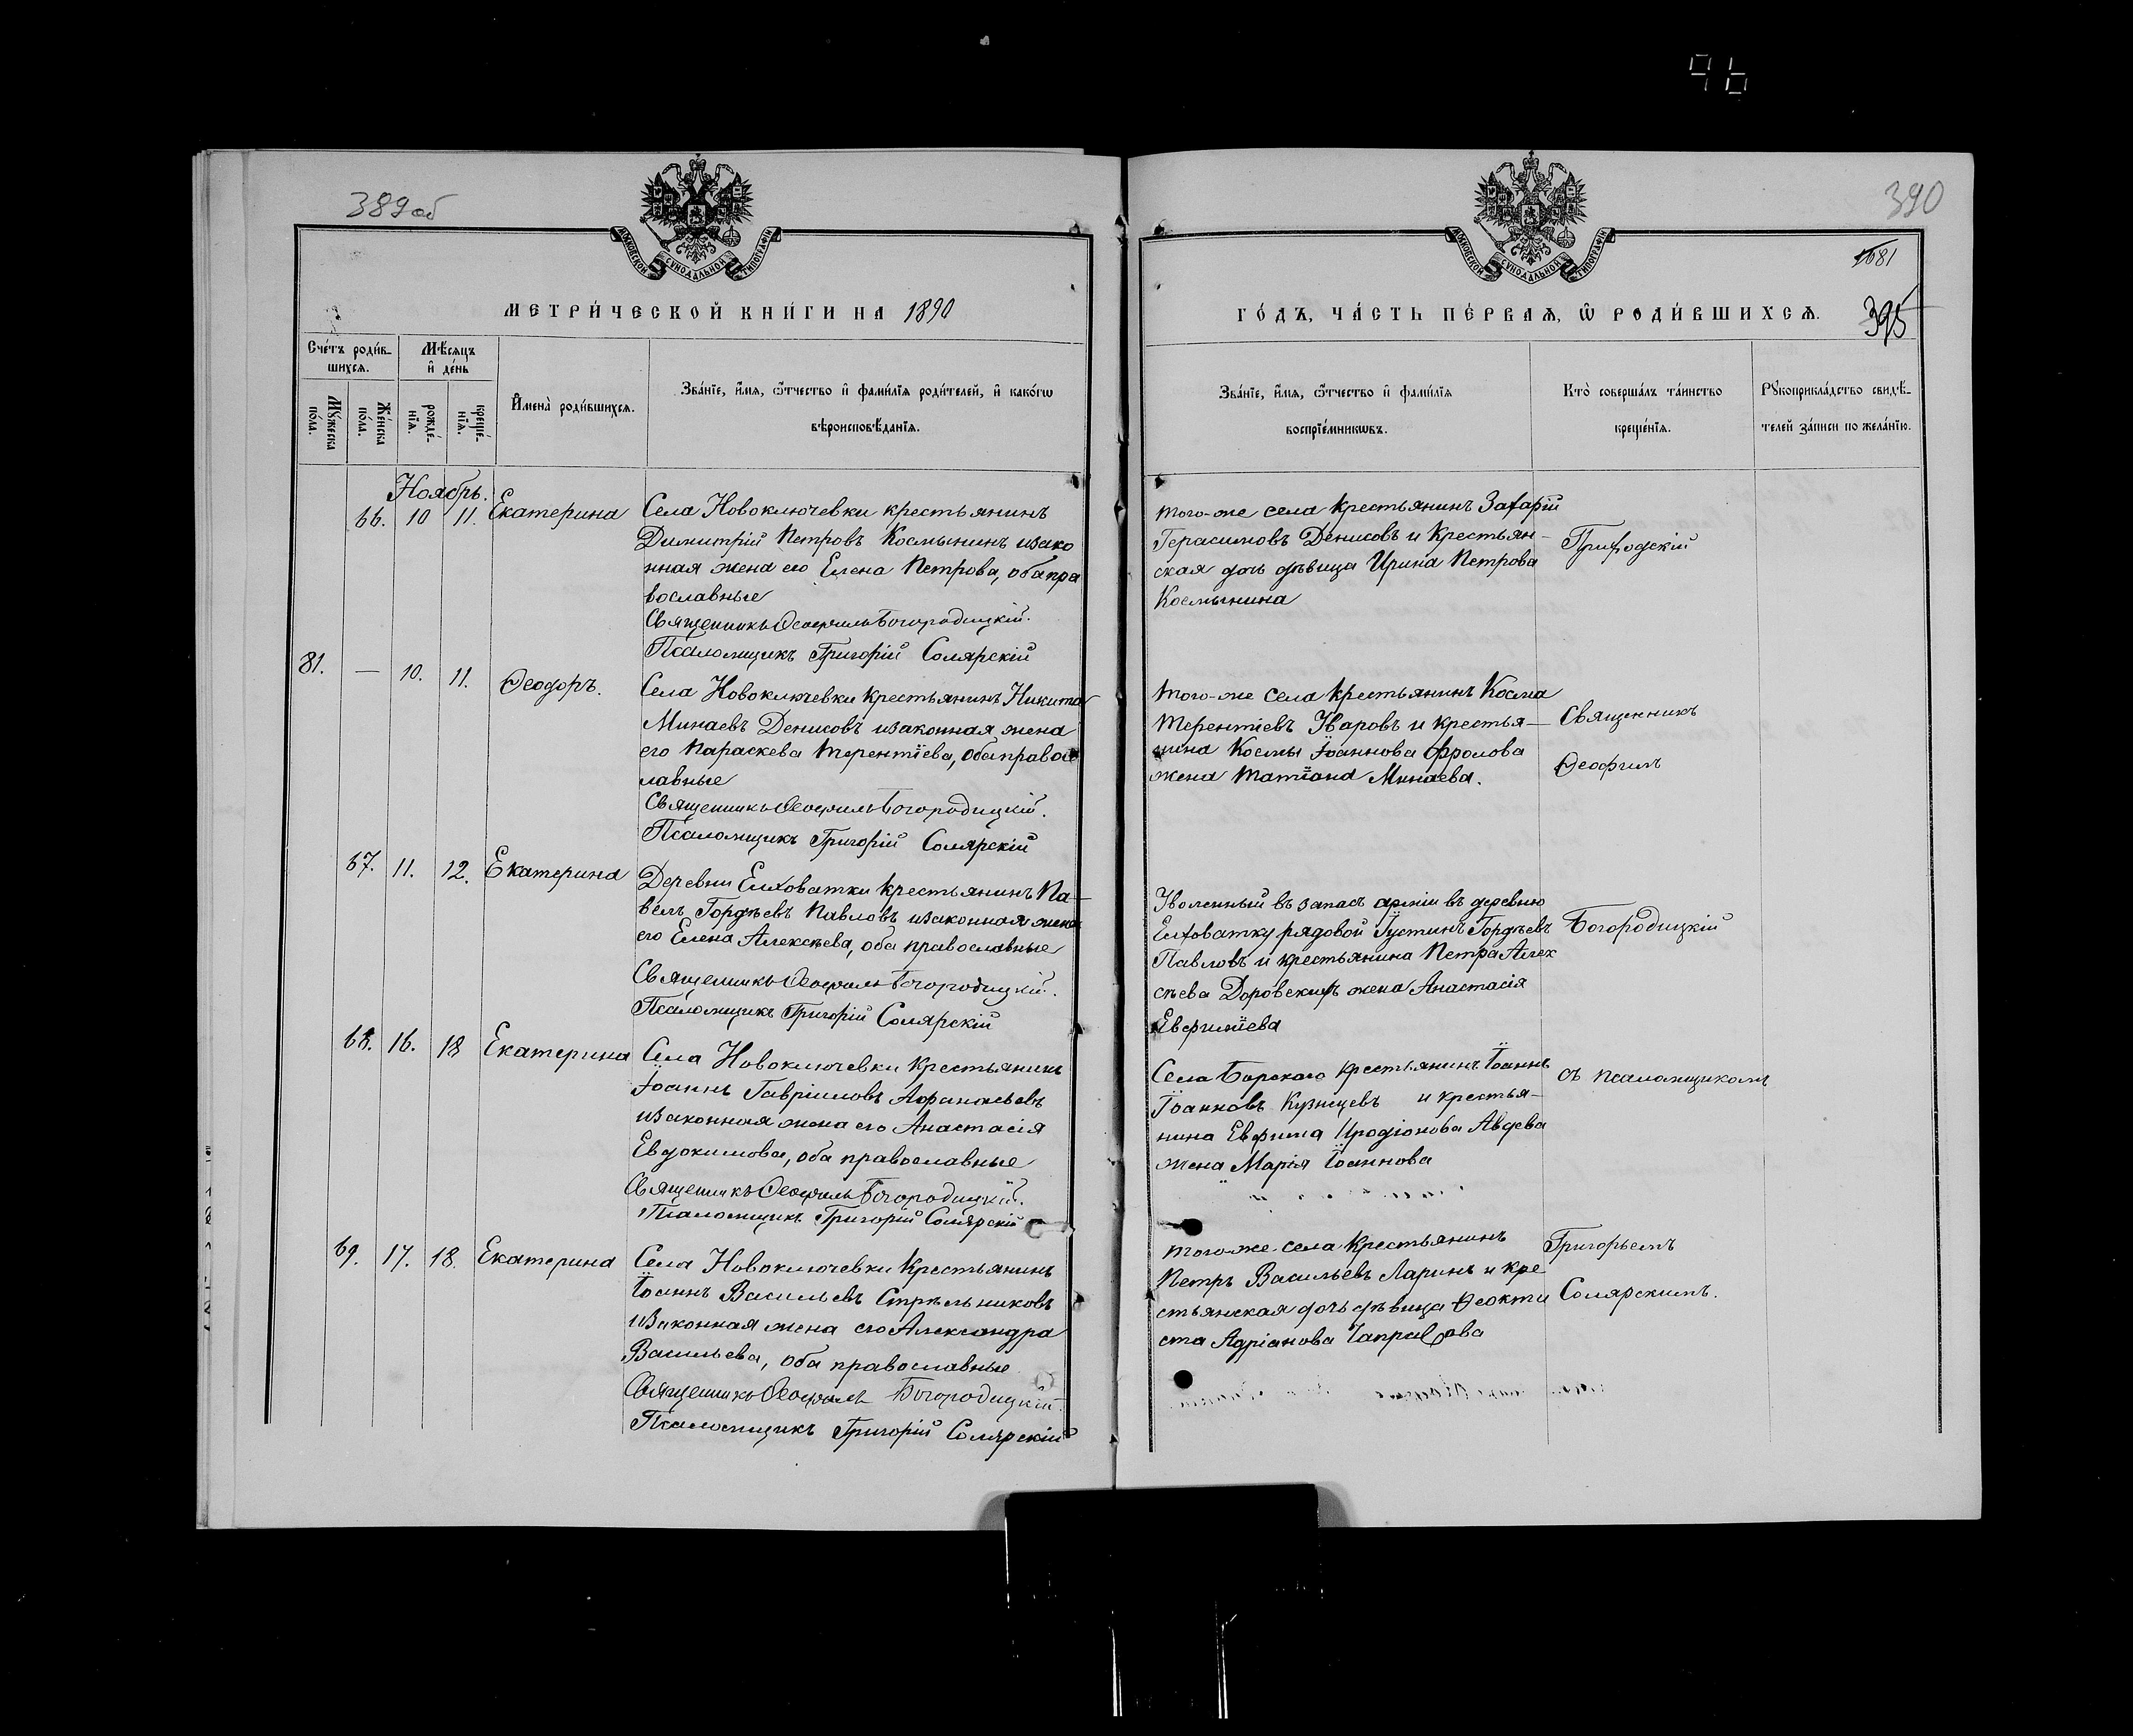 96
389об
МОСКОВСКОЙ СУНОДАЛЬНОЙ ТИПОГРАФІИ
МЕТРИ́ЧЕСКОЙ КНИ́ГИ НА 1890
Сче́тъ роди́в-
шихсѧ.
Мѣ́сѧцъ
и҆ де́нь
Мꙋ́жеска
по́ла.
Же́нска
по́ла.
рожде́-
нїѧ.
креще́-
нїѧ.
И҆мена̀ роди́вшихсѧ.
Зва́нїе, и҆́мѧ, ѻ҆́тчество и҆ фами́лїѧ роди́телей, и҆ како́гѡ
вѣроисповѣ́данїѧ.
Ноябрь.
66. 10 11. Екатерина
Села Новоключевки крестьянинъ
Димитрій Петровъ Космынинъ изако
нная жена его Елена Петрова, оба пра
вославные
Священникъ Ѳеофилъ Богородицкій.
Псаломщикъ Григорій Солярскій
81. — 10. 11. Ѳеодоръ.
Села Новоключевки крестьянинъ Никита
Минаевъ Денисовъ изаконная жена
его Параскева Терентіева, оба правос
лавные
Священникъ Ѳеофилъ Богородицкій.
Псаломщикъ Григорій Солярскій
67. 11. 12. Екатерина
Деревни Елховатки крестьянинъ Па-
велъ Гордѣевъ Павловъ изаконная жена
его Елена Алексѣева, оба православные
Священникъ Ѳеофилъ Богородицкій.
Псаломщикъ Григорій Солярскій
68. 16. 18 Екатерина
Села Новоключевки крестьянинъ
Іоаннъ Гавріиловъ Афанасьевъ
изаконная жена его Анастасія
Евдокимова, оба православные
Священникъ Ѳеофилъ Богородицкій.
Псаломщикъ Григорій Солярскій
69. 17. 18. Екатерина
Села Новоключевки крестьянинъ
Іоаннъ Васильевъ Стрѣльниковъ
изаконная жена его Александра
Васильева, оба православные
Священникъ Ѳеофилъ Богородицкій.
Псаломщикъ Григорій Солярскій
390
МОСКОВСКОЙ СУНОДАЛЬНОЙ ТИПОГРАФІИ
681
395
ГО́ДЪ, ЧА́СТЬ ПЕ́РВАѦ, Ѡ҆ РОДИ́ВШИХСѦ.
Зва́нїе, и҆́мѧ, ѻ҆́тчество и҆ фами́лїѧ
воспрїе́мникѡвъ.
Кто̀ соверша́лъ та́инство
креще́нїѧ.
Рꙋкоприкла́дство свидѣ́-
телей за́писи по жела́нїю.
того-же села крестьянинъ Захарій
Герасимовъ Денисовъ и крестьян-
ская дочь дѣвица Ирина Петрова
Космынина
Приходскій
того-же села крестьянинъ Косма
Терентіевъ Уваровъ и крестья-
нина Космы Іоаннова Фролова
жена Татіана Минаева.
Священникъ
Ѳеофилъ
Уволенный въ запасъ арміи въ деревню
Елховатку рядовой Іустинъ Гордѣевъ
Павловъ и крестьянина Петра Алек
сѣева Доровскихъ жена Анастасія
Евфиміева
Богородицкій
Села Борскаго крестьянинъ Іоаннъ
Іоанновъ Кузнецевъ и крестья-
нина Евфима Иродіонова Авдева
жена Марія Іоаннова
съ псаломщикомъ
того-же села крестьянинъ
Петръ Васильевъ Ларинъ и кре
стьянская дочь дѣвица Ѳеокти
ста Адріанова
Григорьемъ
Солярскимъ.